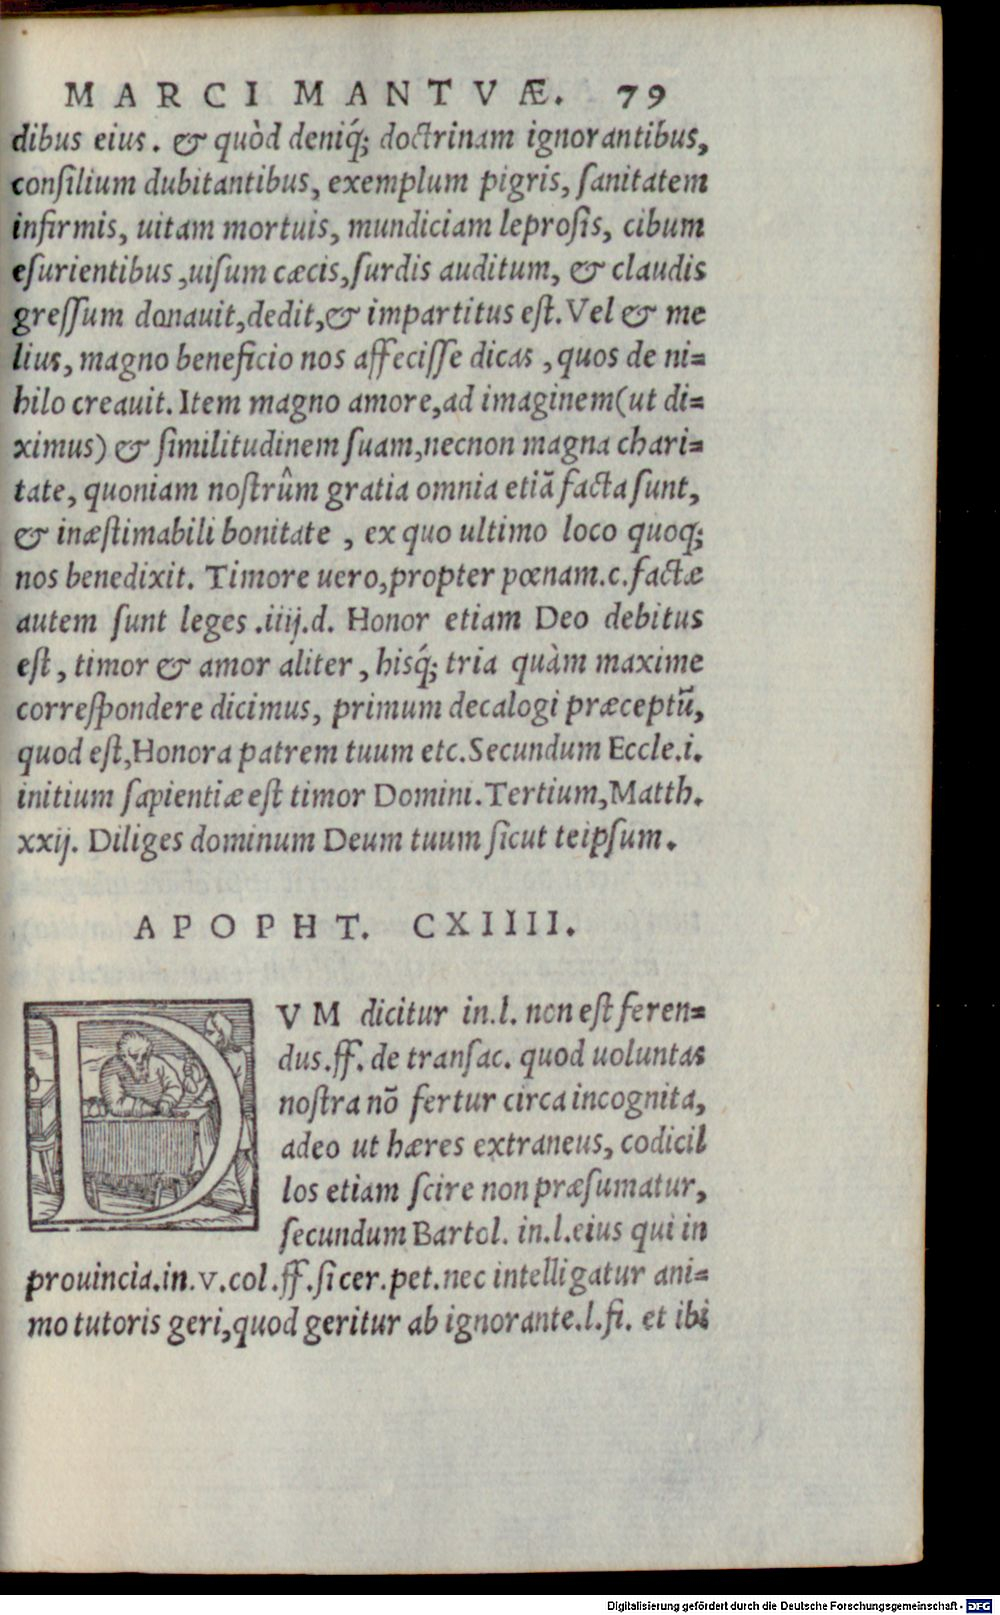 MARCI MANTVÆ. 79
dibus eius. & quòd deniq́; doctrinam ignorantibus,
consilium dubitantibus, exemplum pigris, sanitatem
infirmis, uitam mortuis, mundiciam leprosis, cibum
esurientibus, uisum cæcis, surdis auditum, & claudis
gressum donauit, dedit, & impartitus est. Vel & me
lius, magno beneficio nos affecisse dicas, quos de ni=
hilo creauit. Item magno amore, ad imaginem (ut di=
ximus) & similitudinem suam, necnon magna chari=
tate, quoniam nostrûm gratia omnia etiã facta sunt,
& inæstimabili bonitate, ex quo ultimo loco quoq;
nos benedixit. Timore uero, propter pœnam.c. factæ
autem sunt leges .iiij.d. Honor etiam Deo debitus
est, timor & amor aliter, hisq́; tria quàm maxime
correspondere dicimus, primum decalogi præceptũ,
quod est, Honora patrem tuum etc. Secundum Eccle.i.
initium sapientiæ est timor Domini. Tertium, Matth.
xxij. Diliges dominum Deum tuum sicut teipsum.
APOPHT. CXIIII.
DVM dicitur in.l. non est feren=
dus.ff. de transac. quod uoluntas
nostra nõ fertur circa incognita,
adeo ut hæres extraneus, codicil
los etiam scire non præsumatur,
secundum Bartol. in.l. eius qui in
prouincia.in.v.col.ff.si cer.pet. nec intelligatur ani=
mo tutoris geri, quod geritur ab ignorante.l.fi. et ibi
Digitalisierung gefördert durch die Deutsche Forschungsgemeinschaft - DFG